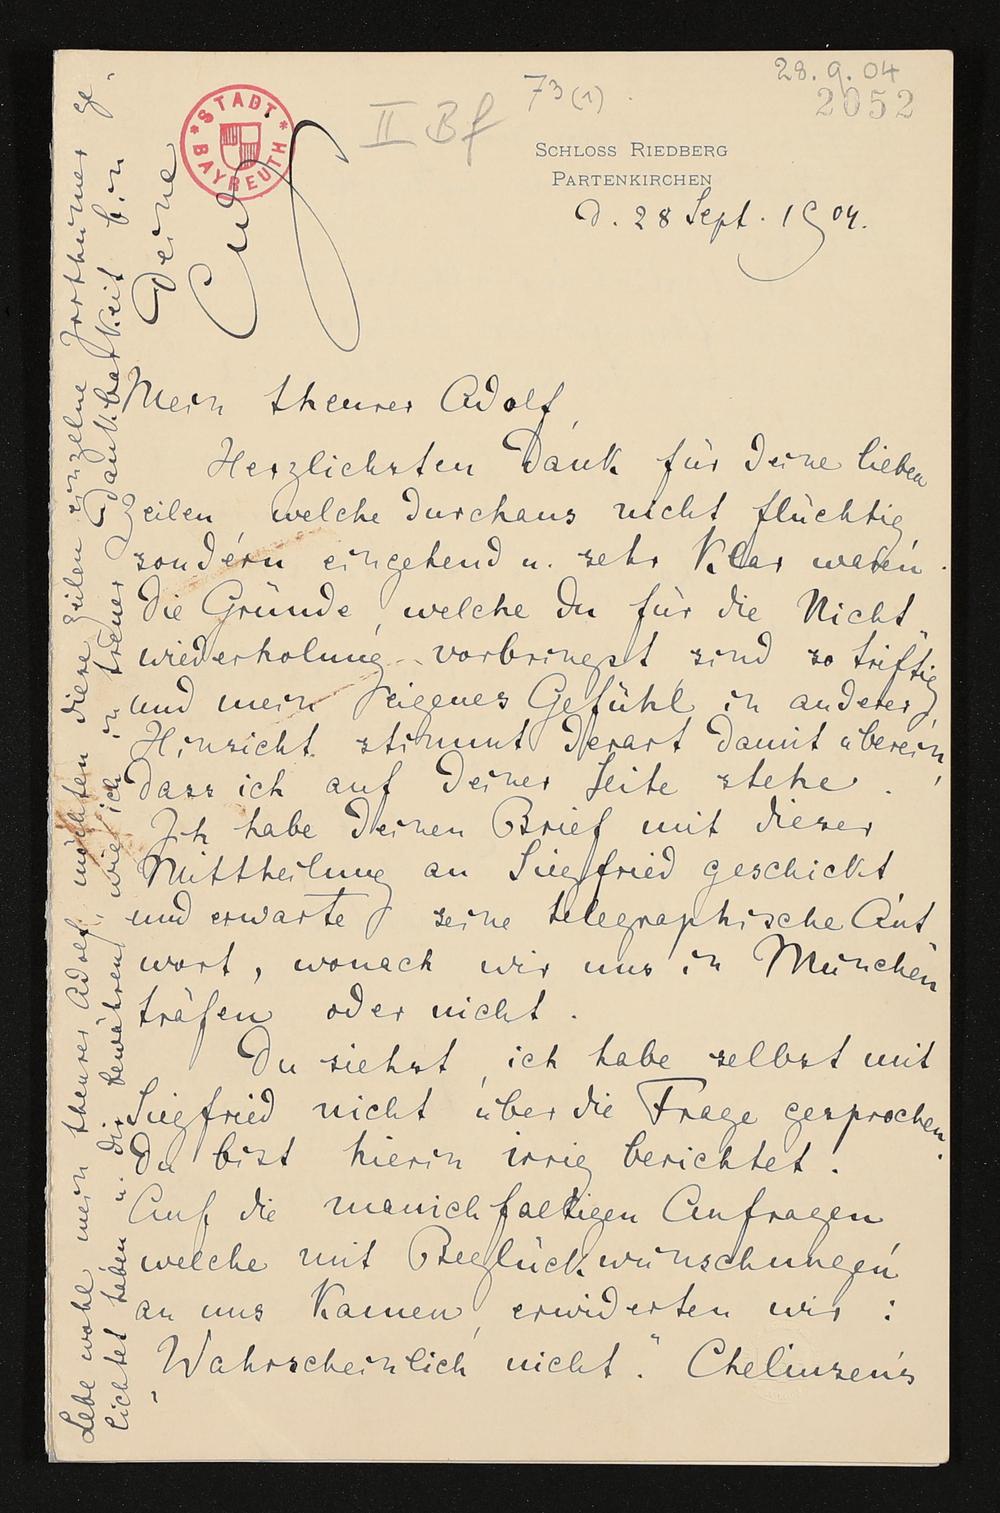 28. 9. 04
2052
73 (1)
II Bf
STADT BAYREUTH
SCHLOSS RIEDBERG
PARTENKIRCHEN
d. 28 Sept. 1904.
Mein theurer Adolf,
Herzlichsten Dank für Deine lieben
Zeilen welche durchaus nicht flüchtig,
sondern eingehend u. sehr klar waren.
Die Gründe, welche Du für die Nicht
wiederholung vorbringst sind so triftig,
und mein eigenes Gefühl in anderer
Hinsicht stimmt derart damit überein,
dass ich auf Deiner Seite stehe.
Ich habe Deinen Brief mit dieser
Mittheilung an Siegfried geschickt
und erwarte seine telegraphische Ant
wort, wonach wir uns in München
träfen oder nicht.
Du siehst, ich habe selbst mit
Siegfried nicht über die Frage gesprochen.
Du bist hierin irrig berichtet.
Auf die manichfaltigen Anfragen
welche mit Beglückwünschungen
an uns kamen, erwiderten wir:
"Wahrscheinlich nicht." Chelinsen's
Lebe wohl mein theurer Adolf, möchten diese Zeilen einzelne Irrthümer ge-
lichtet haben u. dir bewähren, wie ich in treuer Dankbarkeit bin
Deine